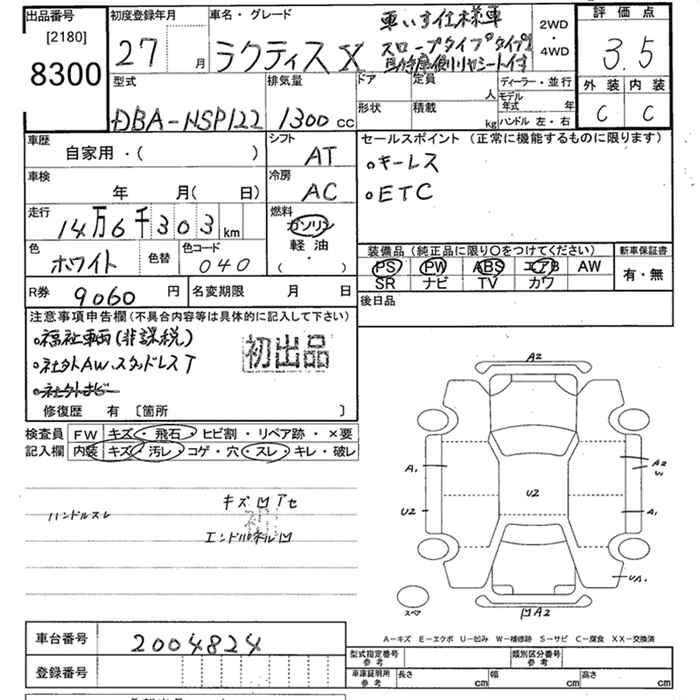 出品番号
[2180]
8300
初度登録年月
27 月
車名・グレード
ラクティス X
車いす仕様車
スロープタイプタイプⅠ
リヤシート付
2WD
・
4WD
評価点
3.5
外装 内装
C C
型式
DBA-NSP122
排気量
1300 cc
ドア 定員
人
形状 積載
kg
ディーラー・並行
モデル年式 年
ハンドル 左・右
車歴
自家用・( )
シフト
AT
車検
年 月( 日)
冷房
AC
走行
14万6千303km
燃料
ガソリン
軽油
( ・ )
色
ホワイト
色替
色コード
040
セールスポイント (正常に機能するものに限ります)
○キーレス
○ETC
装備品 (純正品に限り○をつけてください)
PS PW ABS エアB AW
SR ナビ TV カワ
新車保証書
有・無
R券 9060 円
名変期限 月 日
後日品
注意事項申告欄(不具合内容等は具体的に記入して下さい)
○福祉車輌(非課税)
○社外AW、スタッドレスT
○社外ナビー
初出品
修復歴 有 〔箇所 〕
検査員 FW キズ・飛石・ヒビ割・リペア跡・×要
記入欄 内装 キズ・汚レ・コゲ・穴・スレ・キレ・破レ
ハンドルスレ
キズ凹アセ
エンドパネル凹
A2
A1
U2
U2
A2
W
A1
UA1
スペア
凹A2
A-キズ E-エクボ U-凹み W-補修跡 S-サビ C-腐食 XX-交換済
車台番号 2004824
登録番号
型式指定番号
参考
類別区分番号
参考
車庫証明用
参考
長さ cm
幅 cm
高さ cm